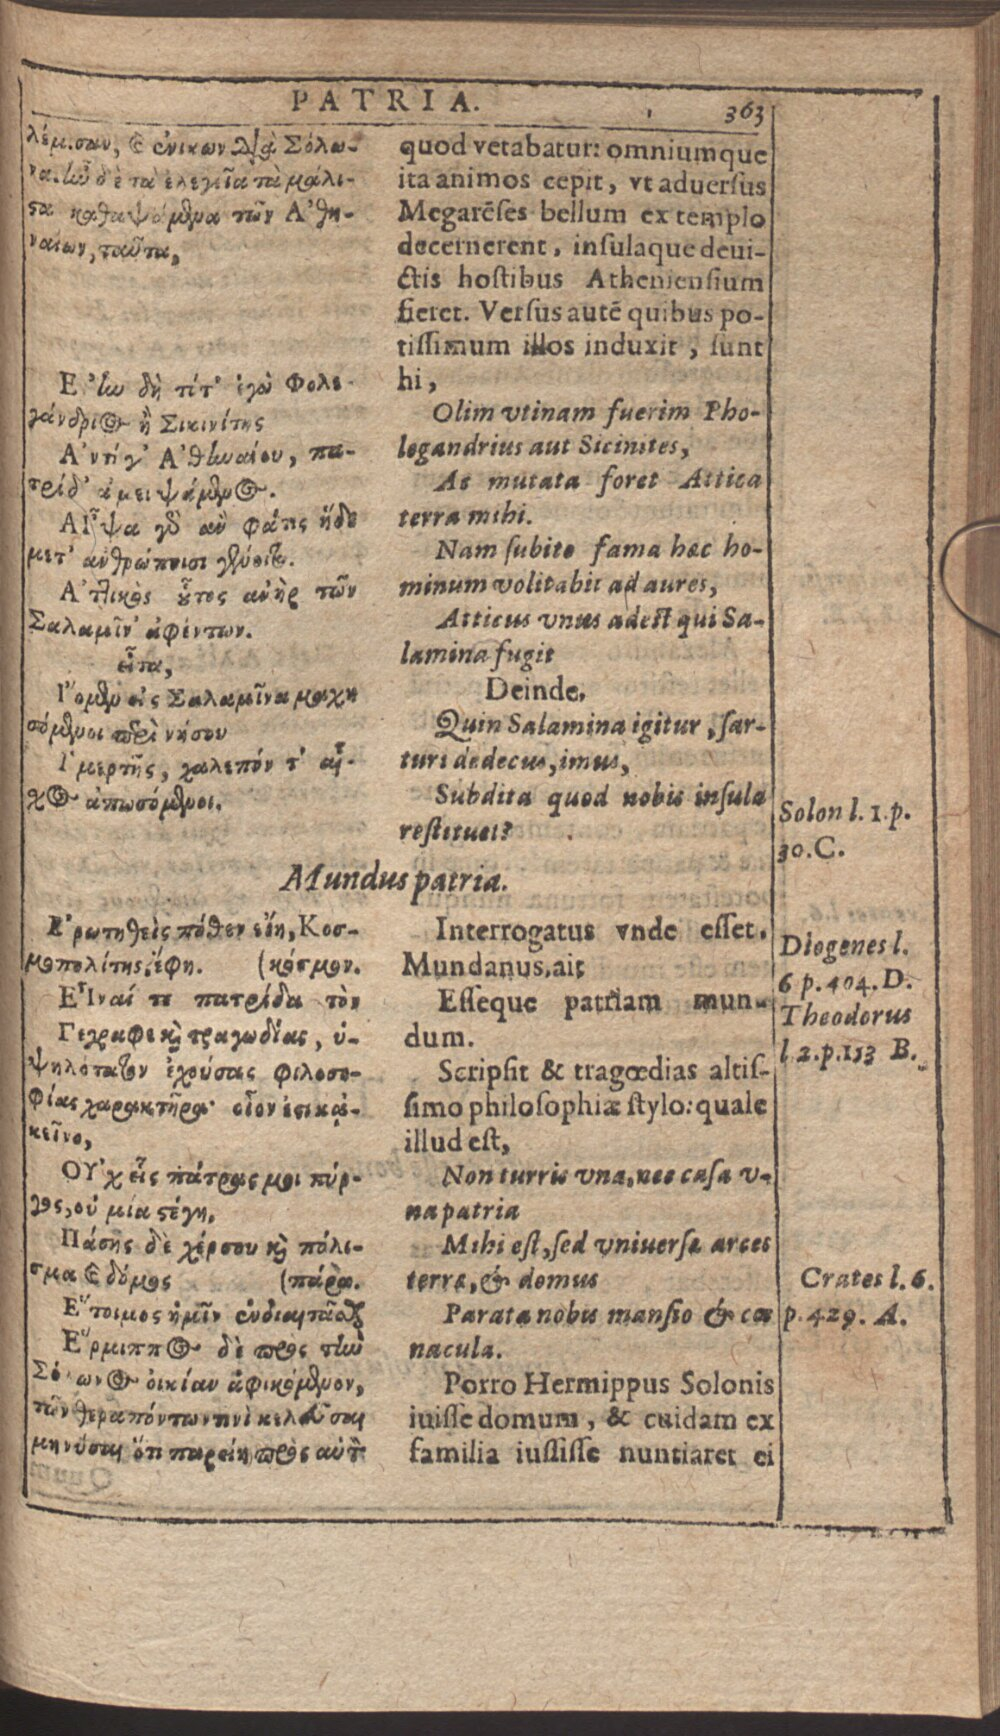 PATRIA.
363
λέμησαν, καὶ ἐνίκων διὰ Σόλω-
να. ἦν δὲ τὰ ἐλεγεῖα τὰ μάλι-
στα καθαψάμενα τῶν Ἀθη-
ναίων, ταῦτα,
Εἴην δὴ τότ' ἐγὼ Φολε-
γάνδριος ἢ Σικινίτης
Ἀντί γ' Ἀθηναίου, πα-
τρίδ' ἀμειψάμενος.
Αἶψα γὰρ ἂν φάτις ἥδε
μετ' ἀνθρώποισι γένοιτο.
Ἀττικὸς οὗτος ἀνὴρ τῶν
Σαλαμῖν' ἀφέντων.
εἶτα,
Ἴομεν εἰς Σαλαμῖνα μαχη
σόμενοι περὶ νήσου
Ἱμερτῆς, χαλεπόν τ' αἶ-
χος ἀπωσόμενοι.
quod vetabatur: omniumque
ita animos cepit, vt aduersus
Megarēses bellum ex templo
decernerent, insulaque deui-
ctis hostibus Atheniensium
fieret. Versus autē quibus po-
tissimum illos induxit, sunt
hi,
Olim vtinam fuerim Pho-
legandrius aut Sicinites,
At mutata foret Attica
terra mihi.
Nam subito fama hæc ho-
minum volitabit ad aures,
Atticus vnus adest qui Sa-
lamina fugit
Deinde,
Quin Salamina igitur, sar-
turi dedecus, imus,
Subdita quod nobis insula
restituat?
Solon l. 1. p.
30. C.
Mundus patria.
Ἐρωτηθεὶς πόθεν εἴη, Κοσ-
μοπολίτης, ἔφη. (κόσμον.
Εἶναί τε πατρίδα τὸν
Γέγραφε καὶ τραγωδίας, ὑ-
ψηλότατον ἐχούσας φιλοσο-
φίας χαρακτῆρα· οἷον ἐστι κἀ-
κεῖνο,
Οὐχ εἷς πάτρας μοι πύρ-
γος, οὐ μία στέγη,
Πάσης δὲ χέρσου καὶ πόλι-
σμα καὶ δόμος (πάρα.
Ἕτοιμος ἡμῖν ἐνδιαιτᾶσθαι
Ἕρμιππος δὲ πρὸς τὴν
Σόλωνος οἰκίαν ἀφικόμενον,
τῶν θεραπόντων τινὶ κελεῦσαι
μηνῦσαι ὅτι παρείη πρὸς αὐτὸν
Interrogatus vnde esset,
Mundanus, ait
Esseque patriam mun-
dum.
Scripsit & tragœdias altis-
simo philosophiæ stylo: quale
illud est,
Non turris vna, nec casa v-
na patria
Mihi est, sed vniuersæ arces
terræ, & domus
Parata nobis mansio & cœ
nacula.
Porro Hermippus Solonis
iuisse domum, & cuidam ex
familia iussisse nuntiaret ei
Diogenes l.
6 p. 404. D.
Theodorus
l 2. p. 153 B.
Crates l. 6.
p. 429. A.